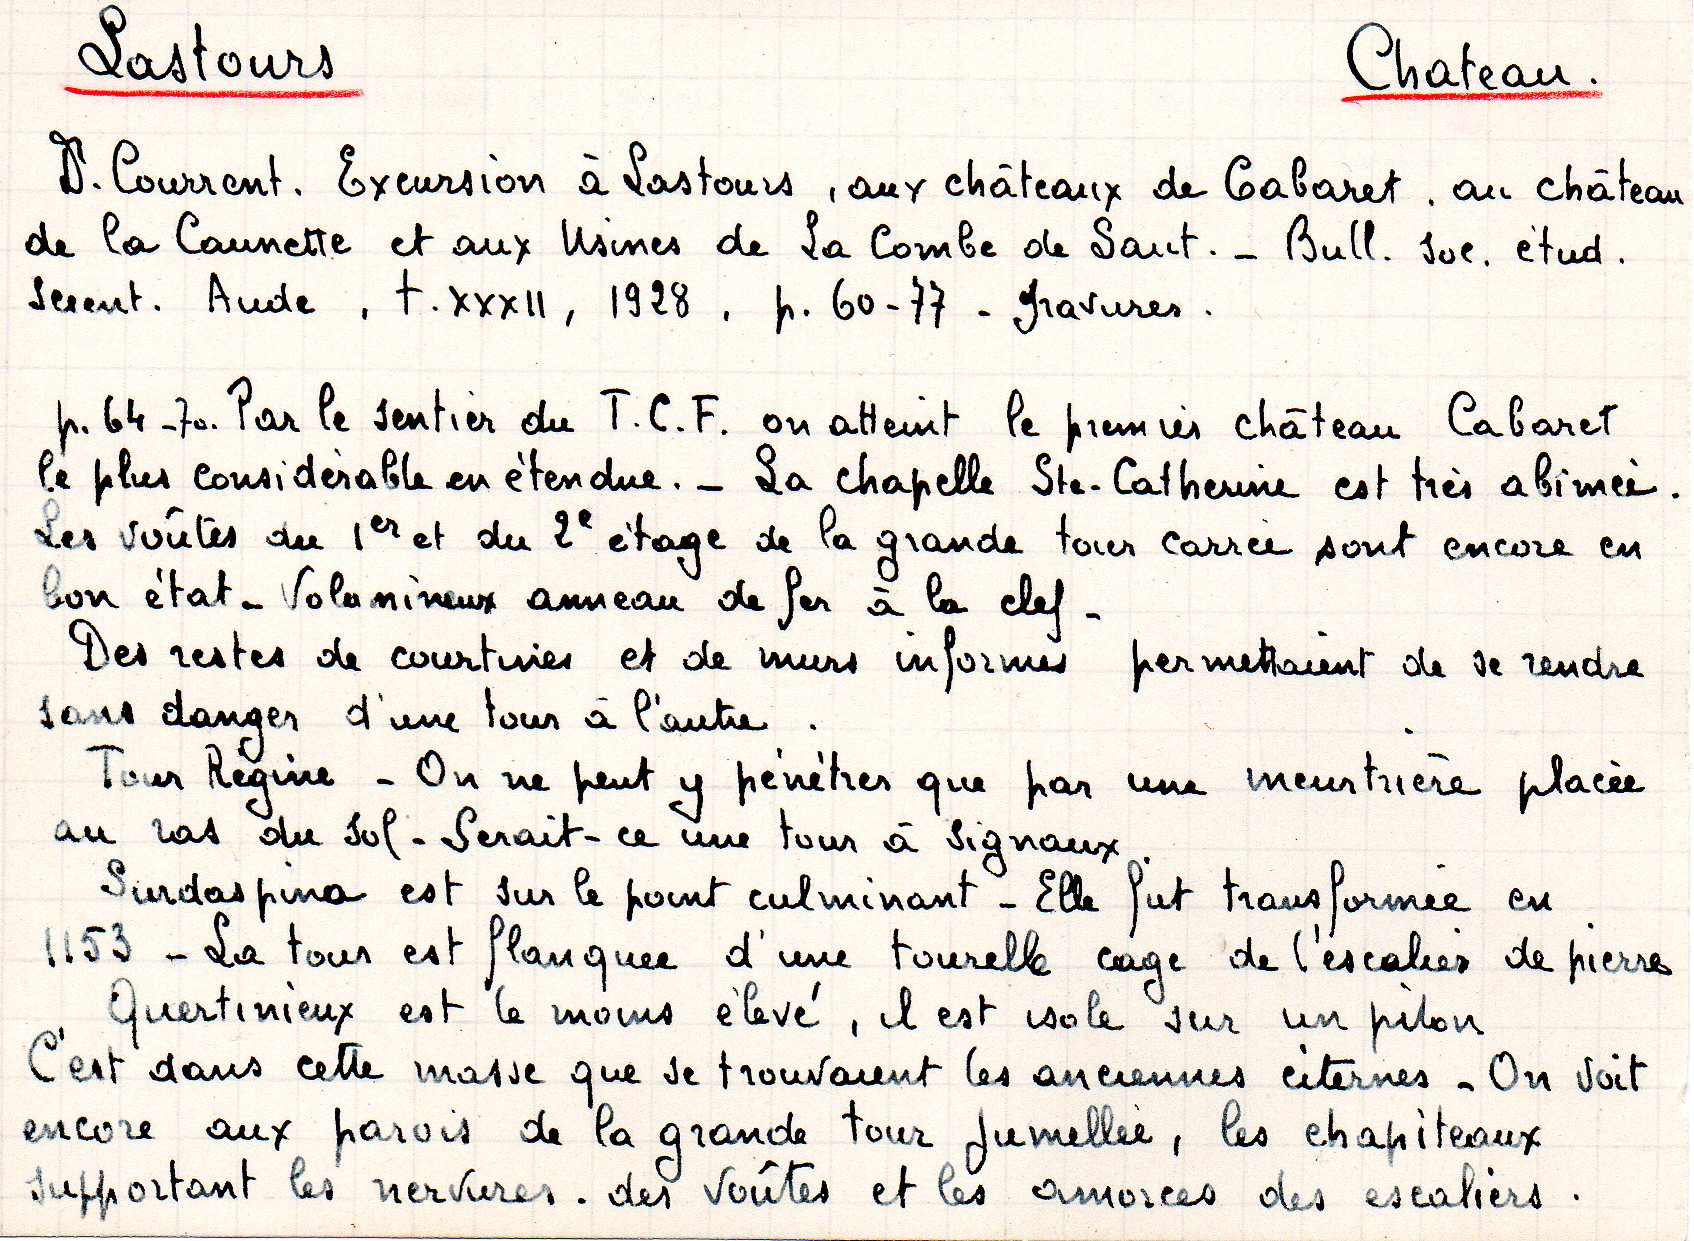 Lastours Chateau.
Dr. Courrent. Excursion à Lastours, aux châteaux de Cabaret, au château
de la Caunette et aux Usines de La Combe de Saut. - Bull. soc. étud.
scient. Aude, t. XXXII, 1928, p. 60-77 - gravures.
p. 64-70. Par le sentier du T.C.F. on atteint le premier château Cabaret
le plus considérable en étendue. - La chapelle Ste-Catherine est très abimée.
Les voûtes du 1er et du 2e étage de la grande tour carrée sont encore en
bon état - Volumineux anneau de fer à la clef -
Des restes de courtines et de murs informes permettaient de se rendre
sans danger d'une tour à l'autre.
Tour Régine - On ne peut y pénétrer que par une meurtrière placée
au ras du sol - Serait-ce une tour à signaux.
Surdaspina est sur le point culminant - Elle fut transformée en
1153 - La tour est flanquée d'une tourelle cage de l'escalier de pierre
Quertinieux est le moins élevé, il est isolé sur un piton
C'est dans cette masse que se trouvaient les anciennes citernes - On voit
encore aux parois de la grande tour jumellée, les chapiteaux
supportant les nervures. des voûtes et les amorces des escaliers.